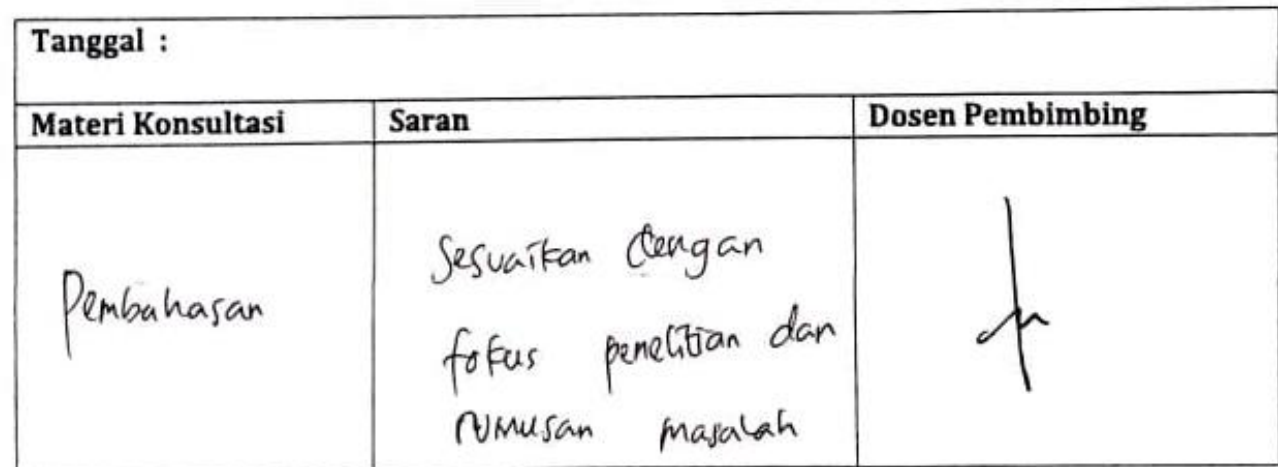 Tanggal :
Materi Konsultasi Saran Dosen Pembimbing
Pembahasan
Sesuaikan dengan
fokus penelitian dan
rumusan masalah